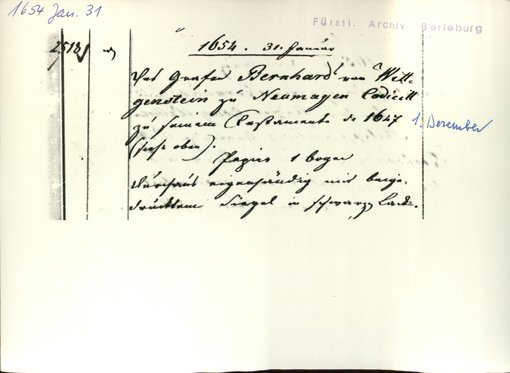 1654 Jan. 31
Fürstl. Archiv Berleburg
2518
1654. 31. Januar
Des Grafen Bernhard von Witt-
genstein zu Neumagen Codicill
zu seinem Testamente de 1647
1. Dezember
(siehe oben).
Papier 1 bogen
durchaus eigenhändig mit beige-
drücktem Siegel in schwarz Lack.